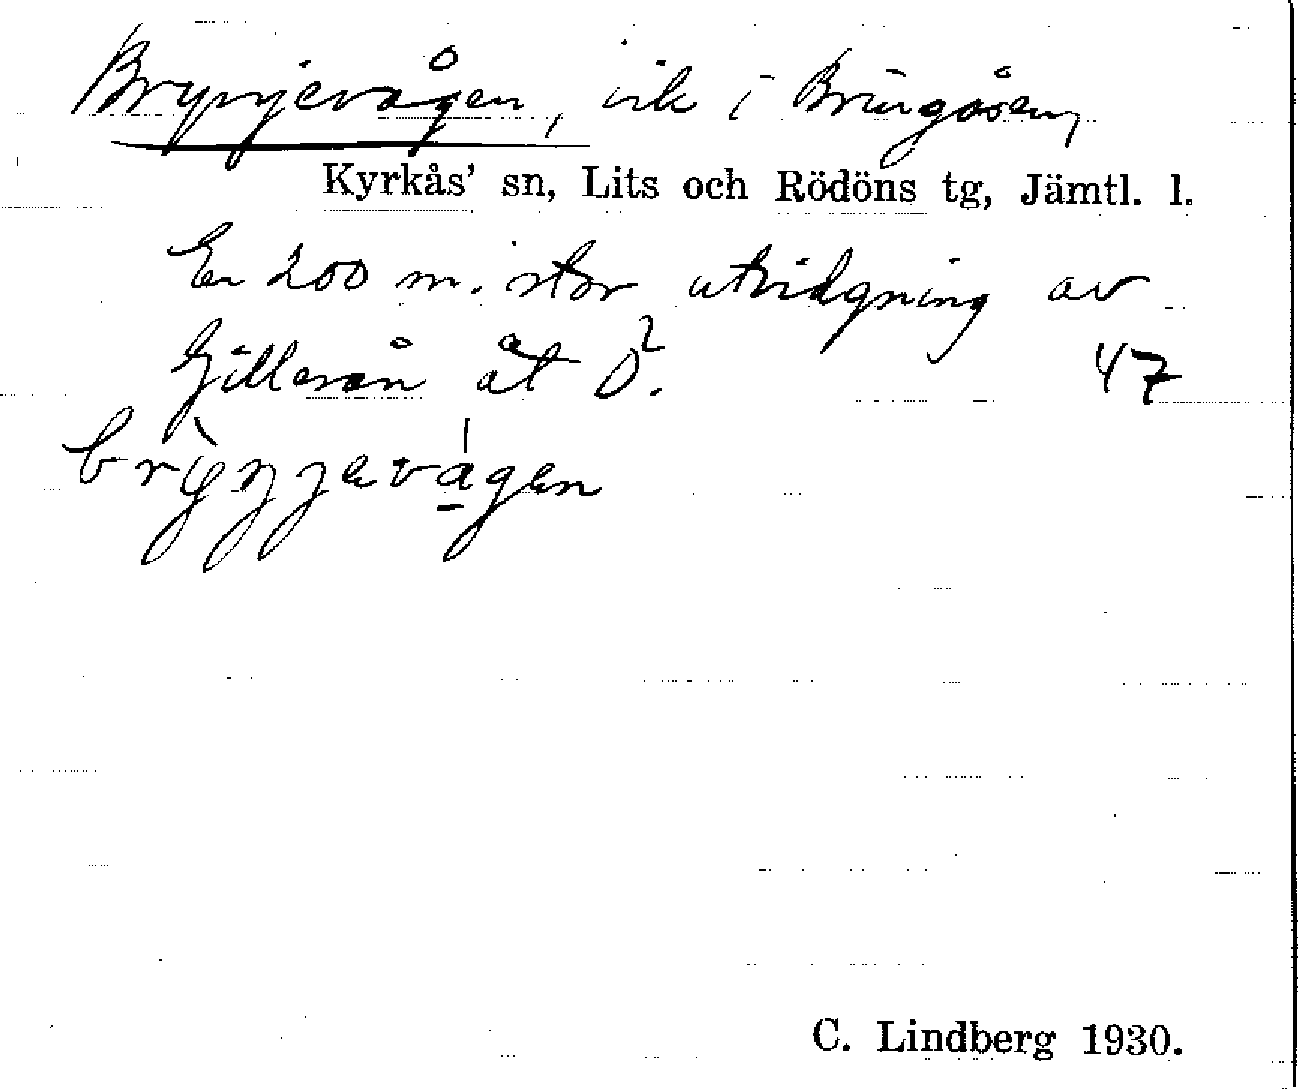 Brynjevågen, vik i Bringåsen,
Kyrkås' sn, Lits och Rödöns tg, Jämtl. l.
En 200 m. stor utvidgning av
Gillerån åt
47
C. Lindberg 1930.